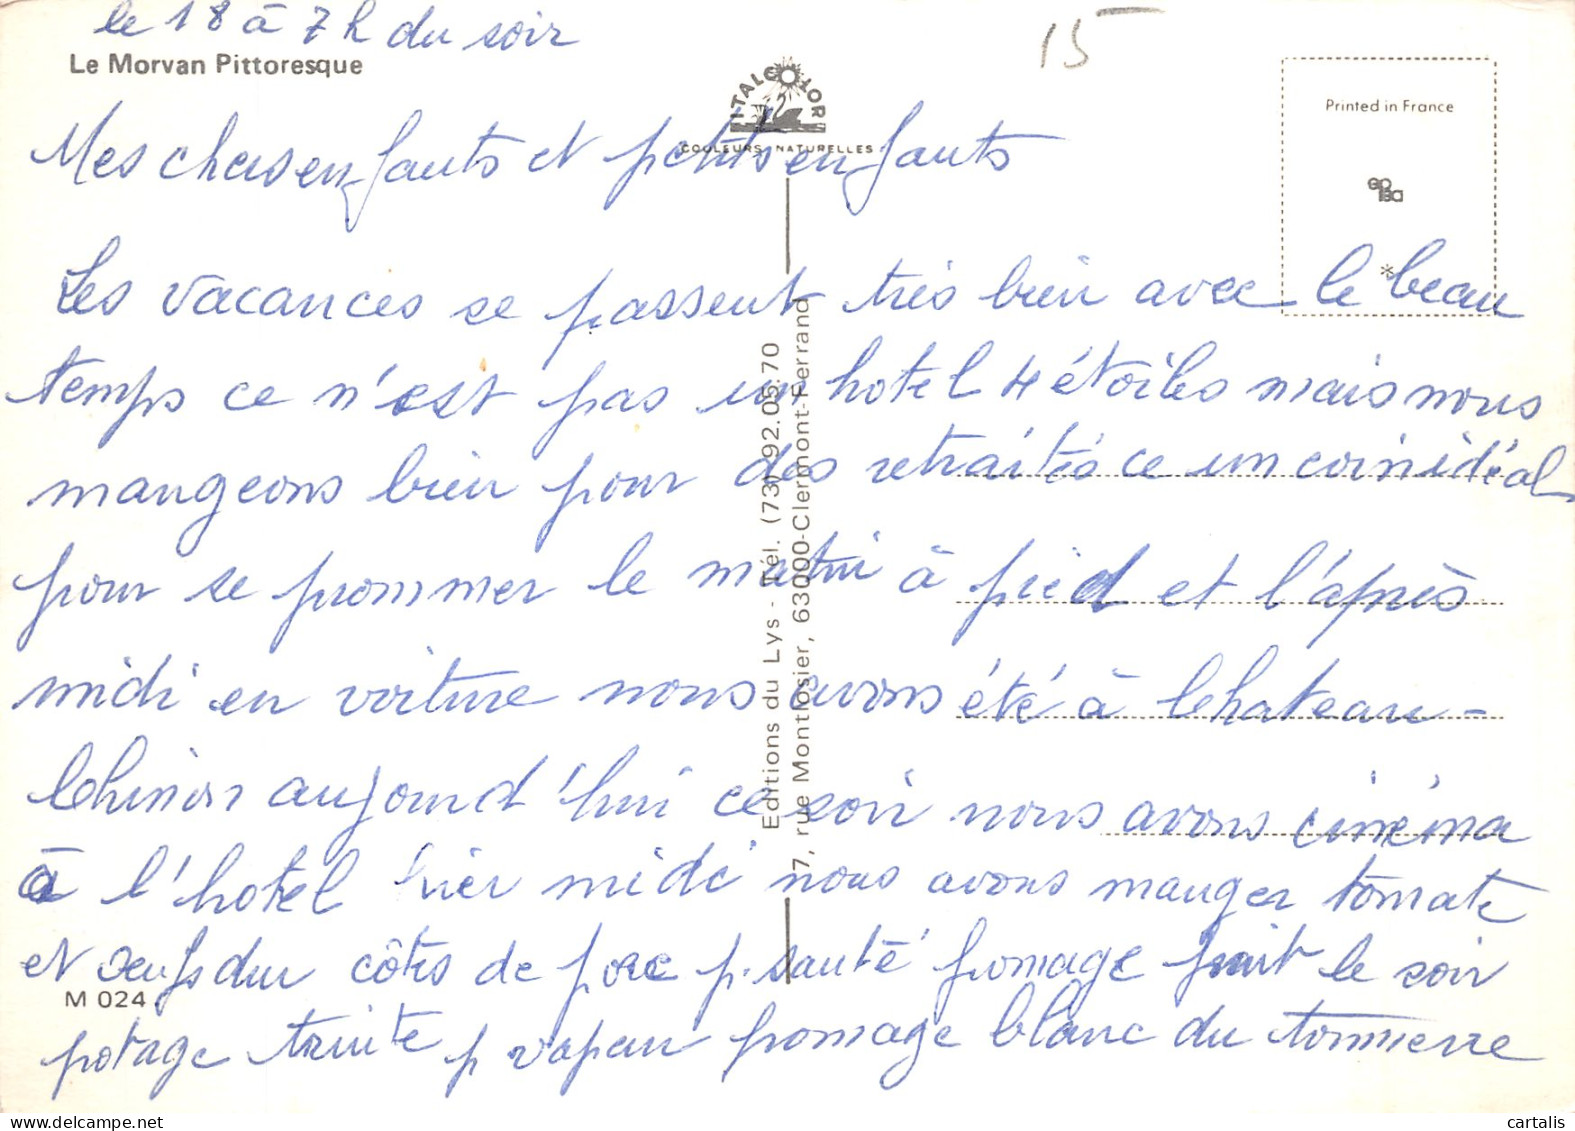 le 18 à 7 h du soir
15
Le Morvan Pittoresque
ITALCOLOR
COULEURS NATURELLES
Printed in France
Mes chers enfants et petits enfants
Les vacances se passent très bien avec le beau
temps ce n'est pas un hotel 4 étoiles mais nous
mangeons bien pour des retraités ce un coin idéal
pour se prommer le matin à pied et l'après
midi en voiture nous avons été à Chateau-
Chinon aujourd'hui ce soir nous avons cinéma
à l'hotel hier midi nous avons manger tomate
et oeufs dur côtes de porc p. sauté fromage fruit le soir
potage truite p vapeur fromage blanc du tonnerre
Editions du Lys - Tél. (73) 92.05.70
7, rue Montlosier, 63000-Clermont-Ferrand
M 024
cartalis